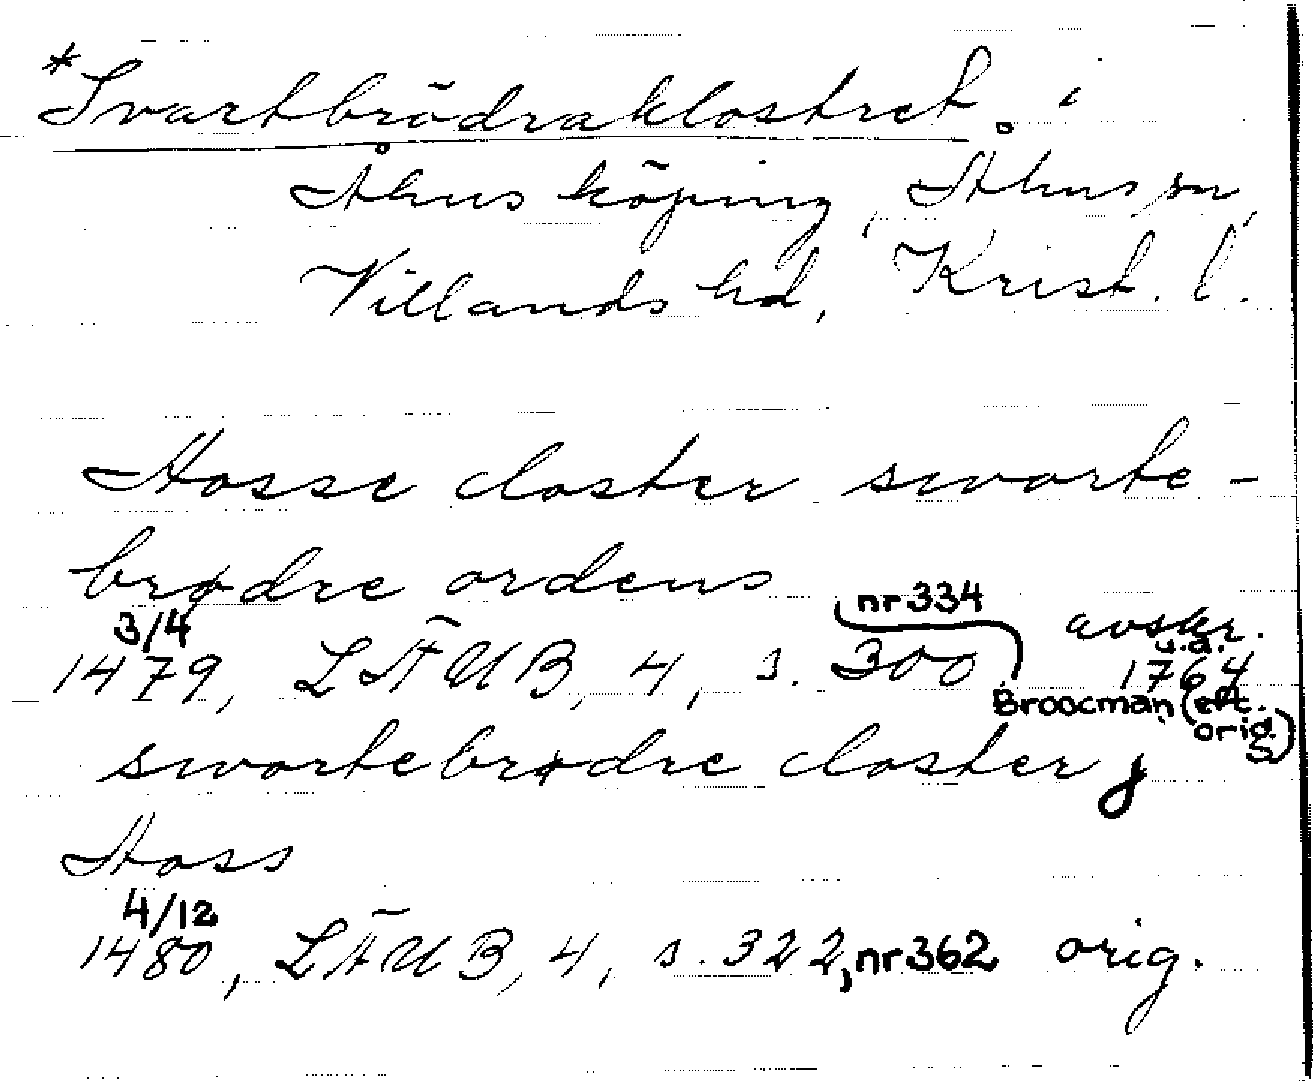 *Svartbrödraklostret i
Åhus köping, Åhus sn,
Villands hd, Krist. l.
Aosse closter sworte-
brødre ordens
3/4 nr 334 avskr.
1479, LÄUB, 4, s. 300 u.å. 1764
Broocman (eft. orig.)
swortebrødre closter j
Aoss
4/12
1480, LÄUB, 4, s. 322, nr 362 orig.